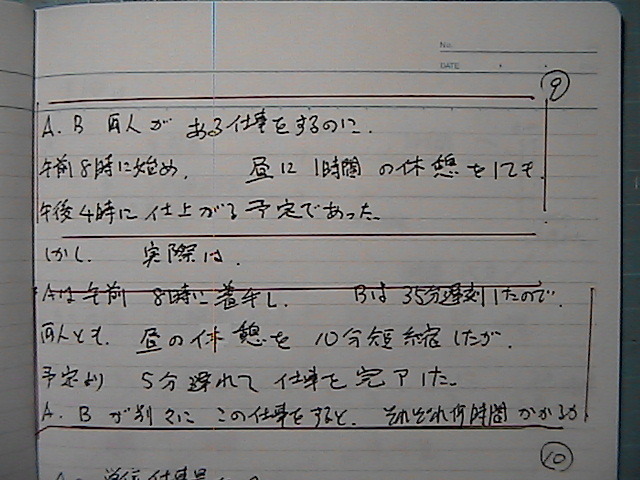 No.
DATE
⑨
A.B 両人が ある仕事をするのに.
午前8時に始め. 昼に1時間の休憩をしても.
午後4時に仕上がる予定であった.
しかし. 実際は.
Aは午前8時に着手し. Bは35分遅刻したので.
両人とも. 昼の休憩を10分短縮したが.
予定より 5分遅れて仕事を完了した.
A.Bが別々にこの仕事をすると. それぞれ何時間かかるか
⑩